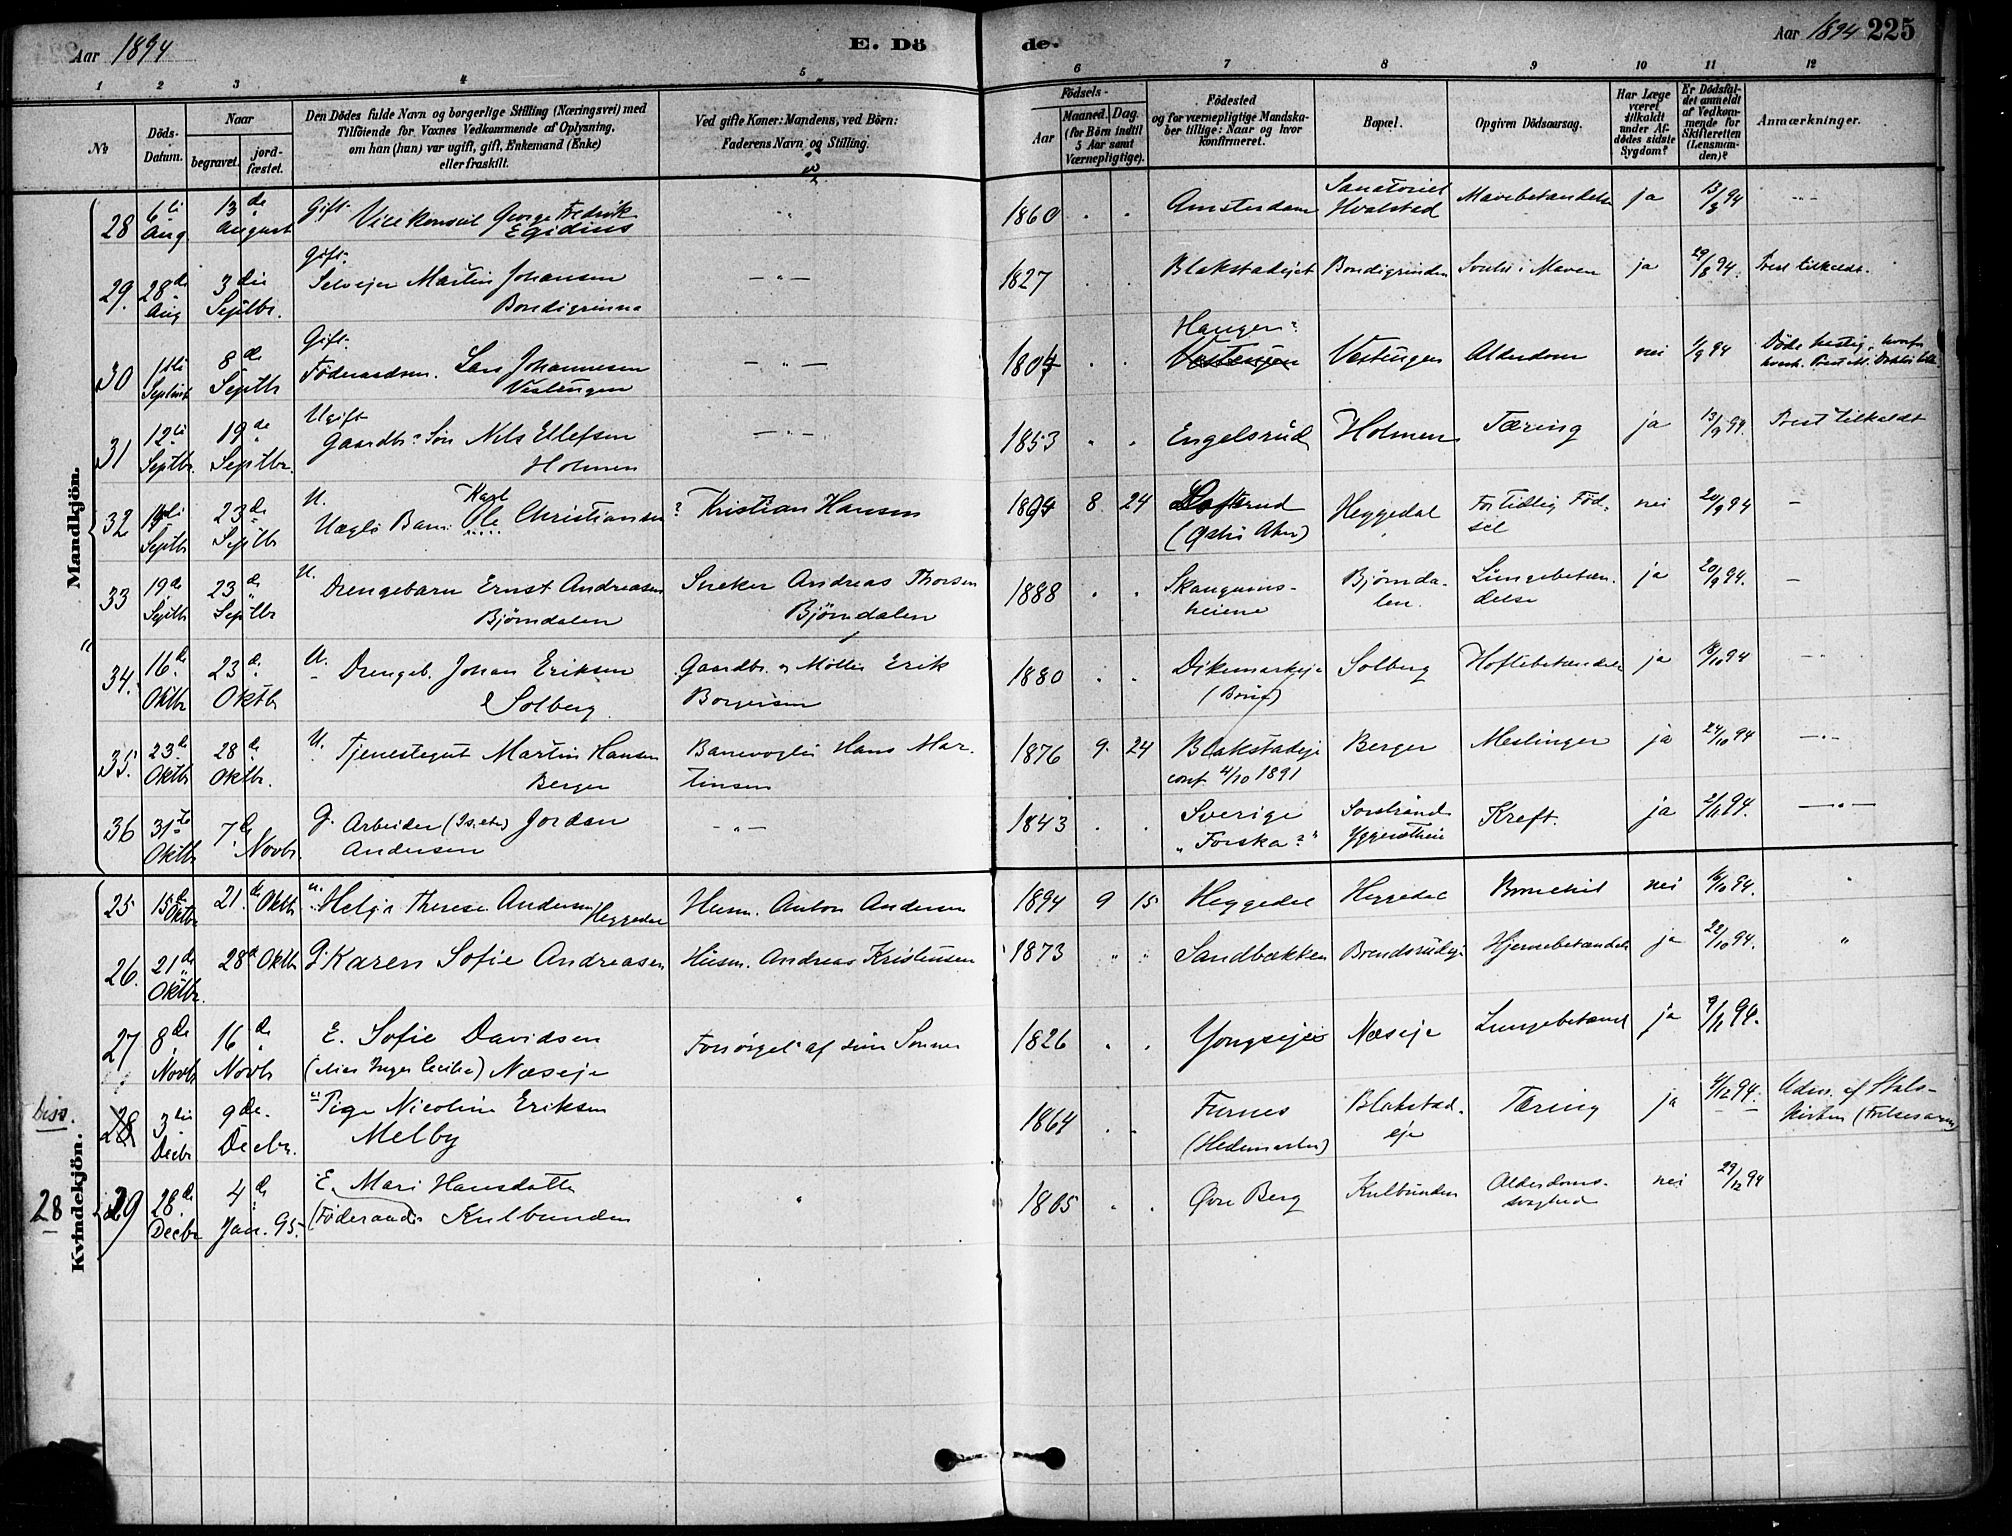 Aar 1894
E. Dö
de.
Aar 1894 225
1 2 3 4 5 6 7 8 9 10 11 12
No
Döds-Datum.
Naar
begravet.
jord-fæstet.
Den Dödes fulde Navn og borgerlige Stilling (Næringsvei) med
Tilföiende for Voxnes Vedkommende af Oplysning,
om han (hun) var ugift, gift, Enkemand (Enke)
eller fraskilt.
Ved gifte Koner: Mandens, ved Börn:
Faderens Navn og Stilling.
Födsels-
Aar
Maaned. Dag.
(for Börn indtil
5 Aar samt
Værnepligtige).
Födested
og for værnepligtige Mandska-
ber tillige: Naar og hvor
konfirmeret.
Bopæl.
Opgiven Dödsaarsag.
Har Læge
været
tilkaldt
under Af-
dödes sidste
Sygdom?
Er Dödsfal-
det anmeldt
af Vedkom-
mende for
Skifteretten
(Lensman-
den)?
Anmærkninger.
Mandkjön.
28 6te Aug. 13de August Gift. Vicekonsul George Fredrik Egidius 1860 Amsterdam Sanatoriet Hvalstad Mavebetændelse ja 13/8 94
29. 28de Aug 3die Septbr. Gift. Selvejer Martin Johansen Bondigrinna 1827 Blakstadejet Bondigrinden i Maven ja 29/8 94. Prest tilkaldt.
30 1ste Septbr 8de Septbr Gift. Föderaadsm. Lars Johannesen Vestengen 1804 Haugen Vestengen Vestengen Alderdom nei 4/9 94 Döde hastig,
31 12te Septbr. 19de Septbr. Ugift Gaardbr. Sön Nils Ellefsen Holmen 1853 Engelsrud Holmen Tæring ja 13/9 94. Prest tilkaldt
32 19de Septbr 23de Septbr U. Uægte Barn. Karl Ole Christiansen ? Kristian Hansen 1894 8 24 Loftsrud (Östre Aker) Heggedal For tidlig Födsel nei 20/9 94 –
33 19de Septbr 23de Septbr U. Drengebarn Ernst Andreasen Bjørndalen Sneker Andreas Thorsen Bjørndalen 1888 Skaugums-heiene Bjørnda-len. Lungebetæn-delse ja 20/9 94. –
34. 16de Oktbr 23de Oktbr U. Drengeb. Johan Eriksen Solberg Gaardbr. og Møller Erik Borgersen 1880 Dikemarkeje Solberg Hoftebetændelse ja 18/10 94
35. 23de Oktbr 28de Oktbr. U. Tjenestegut Martin Hansen Berger Banevogter Hans Mar-tinsen 1876 9. 24 Blakstadeje conf. 4/10 1891 Berger Meslinger ja 24/10 94
36 31te Oktbr 7de Novbr. G. Arbeider Jordan Andersen 1843 Sverige „Forska?“ Kreft. ja 2/11 94.
Kvindekjön.
25 15de Oktbr 21.de Oktbr u. Helga Therese Andersen Heggedal Husm. Anton Andersen 1894 9 15 Heggedal Heggedal nei 16/10 94.
26. 21de Oktbr. 28de Oktbr G. Karen Sofie Andreasen Husm. Andreas Kristensen 1873 Sandbakken Brendsrudeje Hjernebetændelse ja 22/10 94.
27 8de Novbr 16de Novbr E. Sofie Davidsen (alias Inger Cecilie) Næseje Forsörget af sine Sönner 1826 Næseje Lungebetænd ja 9/11 94.
diss. 28 3die Decbr 9de. Decbr. u. Pige Nicoline Eriksen Melby 1864 Furnes (Hedemarken) Blakstad-eje Tæring ja 4/12 94. Udm. af Stats-kirken (Frelsesarm)
28 29 28de Decbr 4de Jan. 95. E. Mari Hansdatter (Föderaads Kulbunden 1805 Øvre Berg Kulbunden Alderdoms-svaghed nei 29/12 94